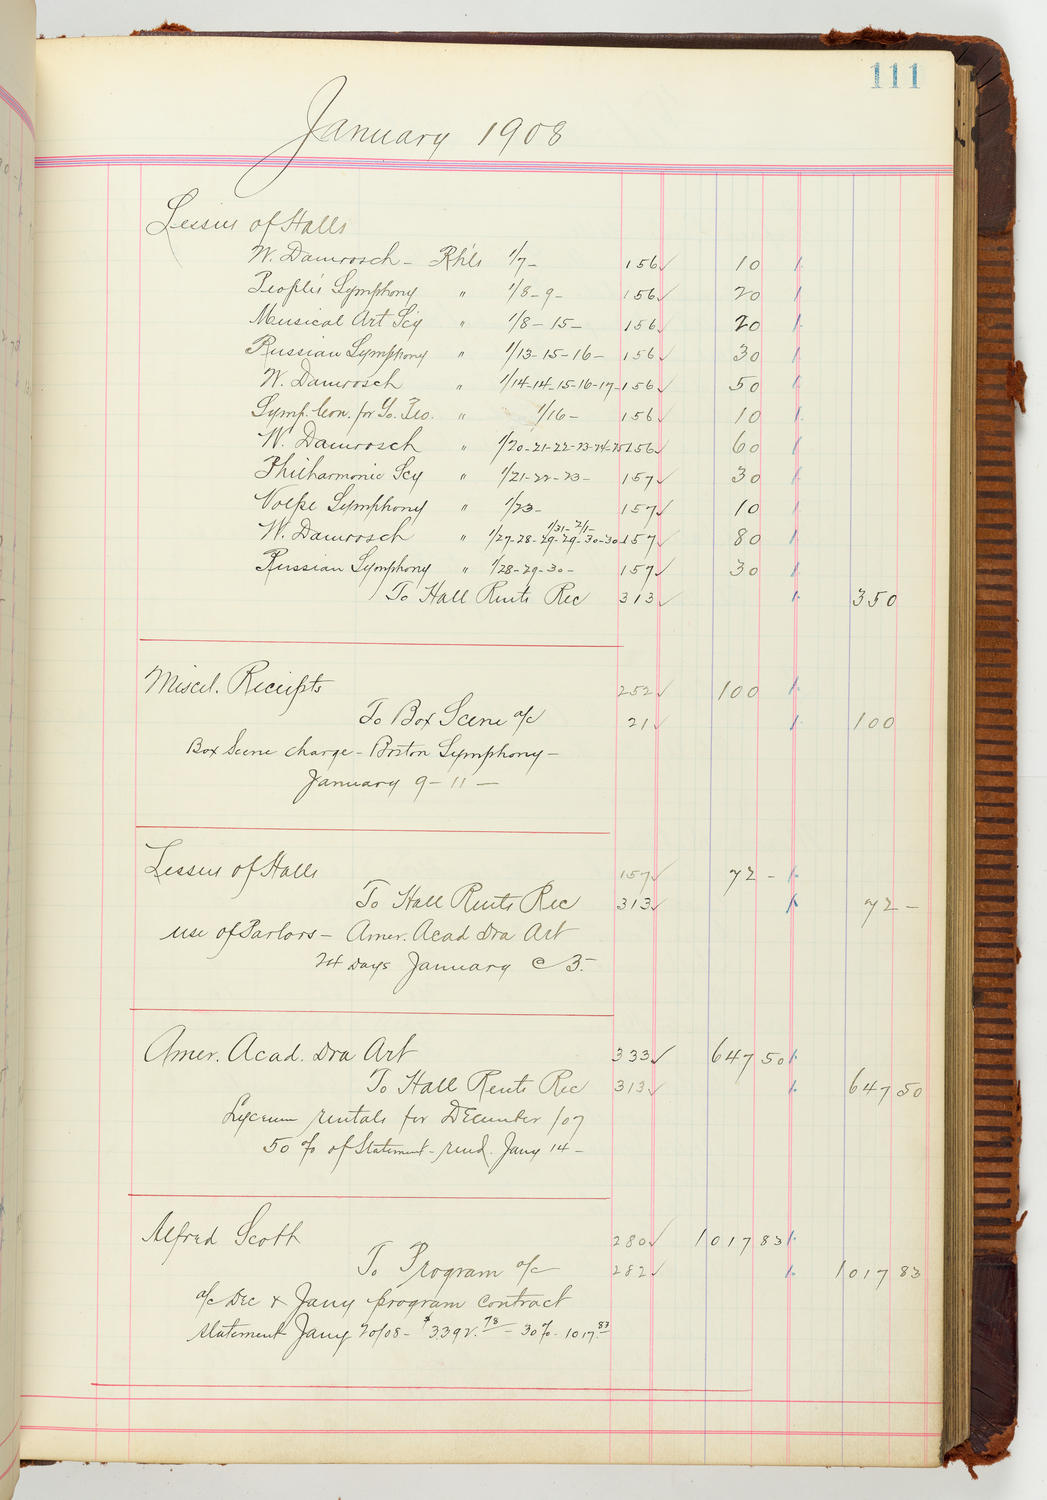 111
January 1908
Lessees of Halls
W. Damrosch - Rh'ls 1/7- 156 ✓ 10
People's Symphony " 1/8-9- 156 ✓ 20
Musical Art Scy " 1/8-15- 156 ✓ 20
Russian Symphony " 1/13-15-16- 156 ✓ 30
W. Damrosch " 1/14-14-15-16-17- 156 ✓ 50
Symp. Con. for Yo. Peo. " 1/16- 156 ✓ 10
W. Damrosch " 1/20-21-22-23-24-25 156 ✓ 60
Philharmonic Scy " 1/21-22-23- 157 ✓ 30
Volpe Symphony " 1/23- 157 ✓ 10
1/31- 2/1-
W. Damrosch " 1/27-28-29-29-30-30 157 ✓ 80
Russian Symphony " 1/28-29-30- 157 ✓ 30
To Hall Rents Rec 313 ✓ 350
Miscel. Receipts 252 ✓ 100
To Box Scene a/c 21 ✓ 100
Box Scene charge - Boston Symphony -
January 9-11-
Lessees of Halls 157 ✓ 72 -
To Hall Rents Rec 313 ✓ 72 -
use of Parlors - Amer. Acad Dra Art
24 Days January @ 3.-
Amer. Acad. Dra Art 333 ✓ 647 50
To Hall Rents Rec 313 ✓ 647 50
Lyceum rentals for December /07
50 % of Statement - rend. Jany 14 -
Alfred Scott 280 ✓ 1017 83
To Program a/c 282 ✓ 1017 83
a/c Dec & Jany program contract
Statement Jany 20/08 - $3392.78 - 30% - 1017.83